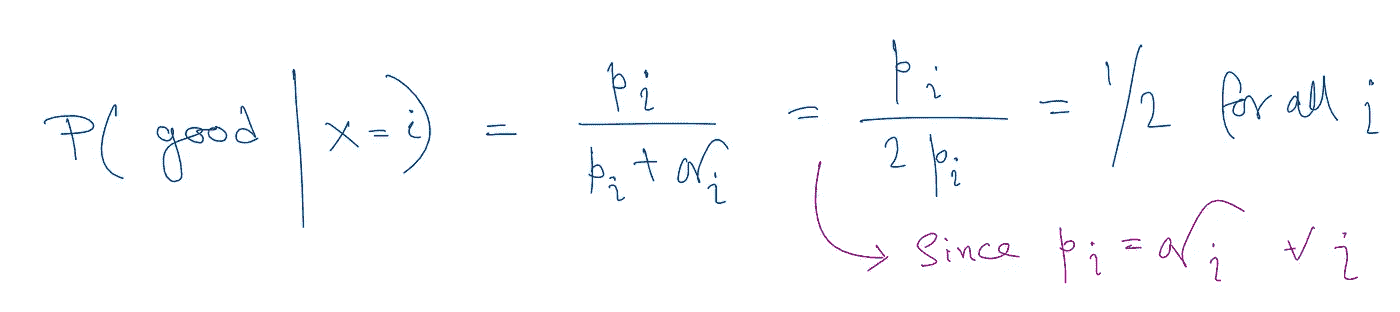 P( good | x = i ) = p_i / (p_i + q_i) = p_i / (2 p_i) = 1/2 for all i
Since p_i = q_i ∀ i